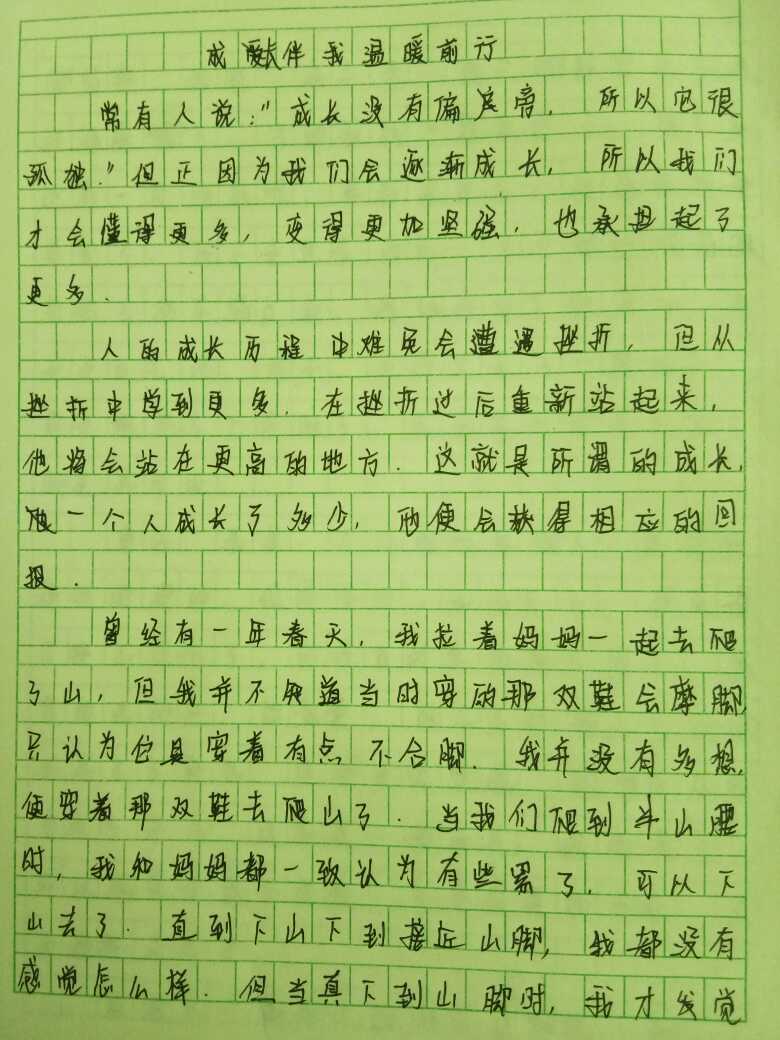 成长伴我温暖前行
常有人说:"成长没有偏旁,所以它很
孤独."但正因为我们会逐渐成长,所以我们
才会懂得更多,变得更加坚强,也承担起了
更多.
人的成长历程中难免会遭遇挫折,但从
挫折中学到更多.在挫折过后重新站起来,
他将会站在更高的地方.这就是所谓的成长,
一个人成长了多少,他便会获得相应的回
报.
曾经有一年春天,我拉着妈妈一起去爬
了山,但我并不知道当时穿的那双鞋会摩脚,
只认为仅是穿着有点不合脚.我并没有多想,
便穿着那双鞋去爬山了.当我们爬到半山腰
时,我和妈妈都一致认为有些累了,可以下
山去了.直到下山下到接近山脚,我都没有
感觉怎么样.但当真下到山脚时,我才发觉